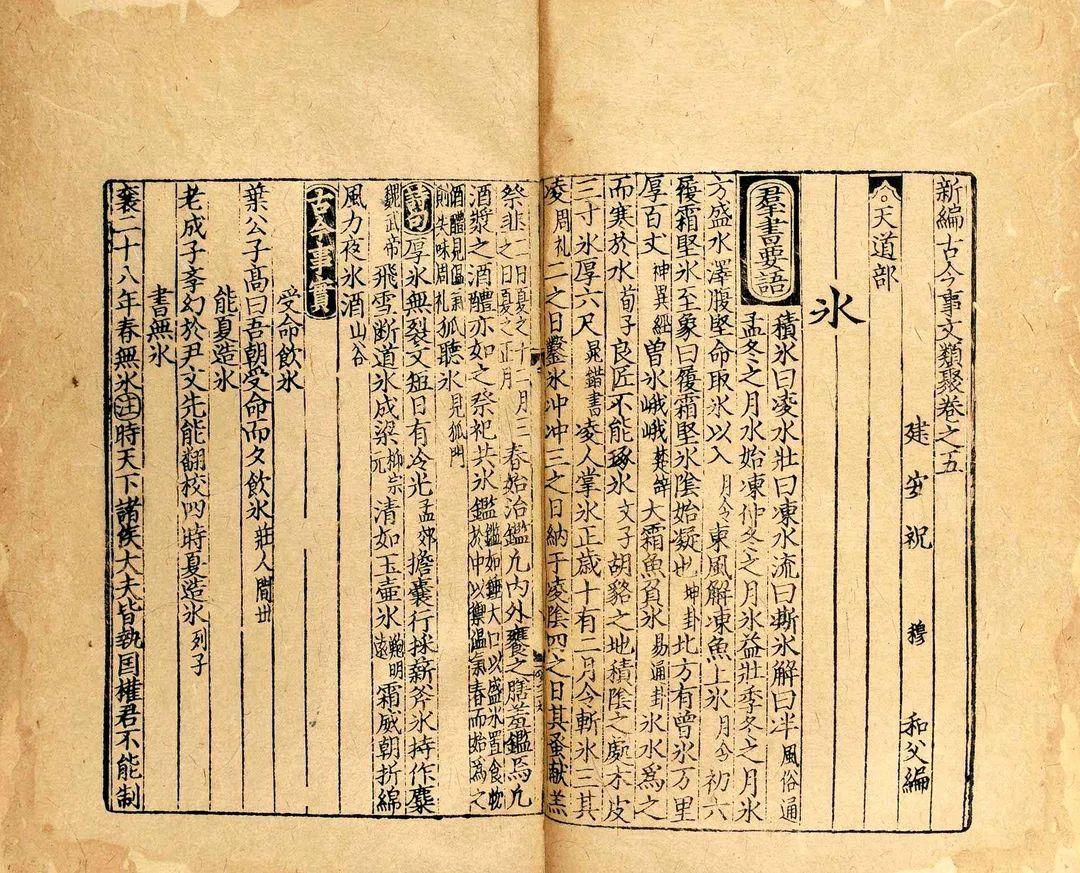 新編古今事文類聚卷之五
建安祝穆和父編
天道部
氷
羣書要語
積氷曰凌水壯曰凍水流曰澌氷解曰泮風俗通
孟冬之月水始凍仲冬之月氷益壯季冬之月氷
方盛水澤腹堅命取氷以入月令東風解凍魚上氷月令初六
履霜堅氷至象曰履霜堅氷陰始凝也坤卦北方有曾氷万里
厚百丈神異經曾氷峨峨楚辞大霜魚負氷易通卦氷水為之
而寒於水荀子良匠不能琢氷文子胡貉之地積陰之處木皮
三寸氷厚六尺晁錯書凌人掌氷正歳十有二月令斬氷三其
凌周礼二之日鑿氷冲冲三之日納于凌陰四之日其蚤献羔
祭韭二之日夏之十二月三之日夏之正月春始治鑑凡内外饔之膳羞鑑焉凡
酒漿之酒醴亦如之祭祀共氷鑑鑑如甀大口以盛氷置食物于中以禦温氣春而始為之
酒醴見温氣則失味周礼狐聽氷見狐門
詩句厚氷無裂文短日有冷光孟郊擔囊行採薪斧氷持作麋
魏武帝飛雪断道氷成梁柳宗元清如玉壷氷鮑明遠霜威朝折綿
風力夜氷酒山谷
古今事實
受命飲氷
葉公子髙曰吾朝受命而夕飲氷莊人間世
能夏造氷
老成子斈幻於尹文先能翻校四時夏造氷列子
書無氷
襄二十八年春無氷注時天下諸侯大夫皆執国權君不能制